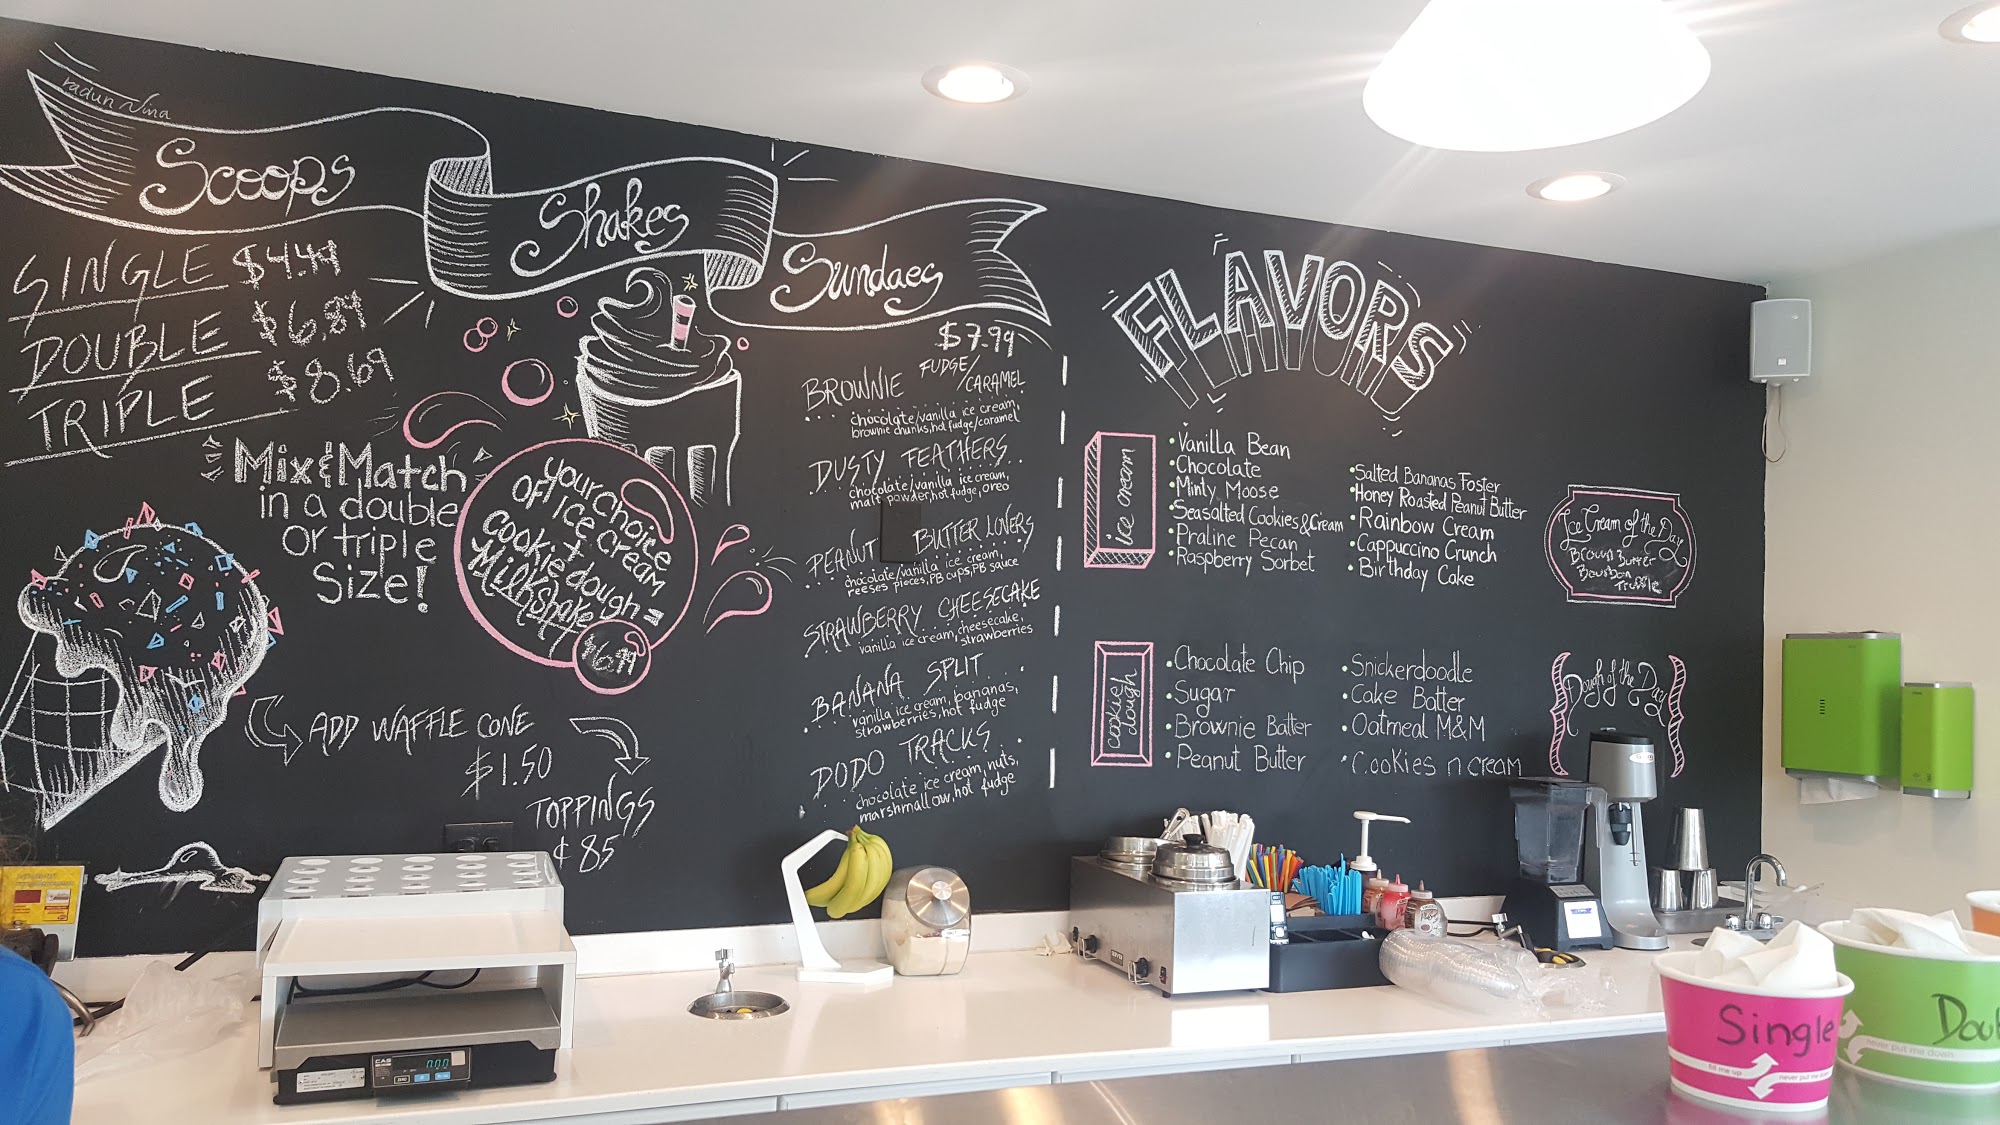 radun Nina
Scoops
Shakes
Sundaes
SINGLE $4.44
DOUBLE $6.89
TRIPLE $8.69
Mix & Match
in a double
or triple
Size!
your choice
of ice cream
+
cookie dough =
Milkshake
ADD WAFFLE CONE
$1.50
TOPPINGS
¢ 85
$7.99
BROWNIE FUDGE/
CARAMEL
chocolate/vanilla ice cream,
brownie chunks, hot fudge/caramel
DUSTY FEATHERS
chocolate/vanilla ice cream,
malt powder, hot fudge, oreo
PEANUT BUTTER LOVERS
chocolate/vanilla ice cream,
reeses pieces, PB cups, PB sauce
STRAWBERRY CHEESECAKE
vanilla ice cream, cheesecake,
strawberries
BANANA SPLIT
vanilla ice cream, bananas,
strawberries, hot fudge
DODO TRACKS
chocolate ice cream, nuts,
marshmallow, hot fudge
FLAVORS
ice cream
Vanilla Bean
Chocolate
Minty Moose
Seasalted Cookies & Cream
Praline Pecan
Raspberry Sorbet
Salted Bananas Foster
Honey Roasted Peanut Butter
Rainbow Cream
Cappuccino Crunch
Birthday Cake
Ice Cream of the Day
Brown Butter
Bourbon
Truffle
cookie
dough
Chocolate Chip
Sugar
Brownie Batter
Peanut Butter
Snickerdoodle
Cake Batter
Oatmeal M&M
Cookies n cream
Dough of the Day
CAS
0.00
Single
fill me up
never put me down
Dou
never put me down